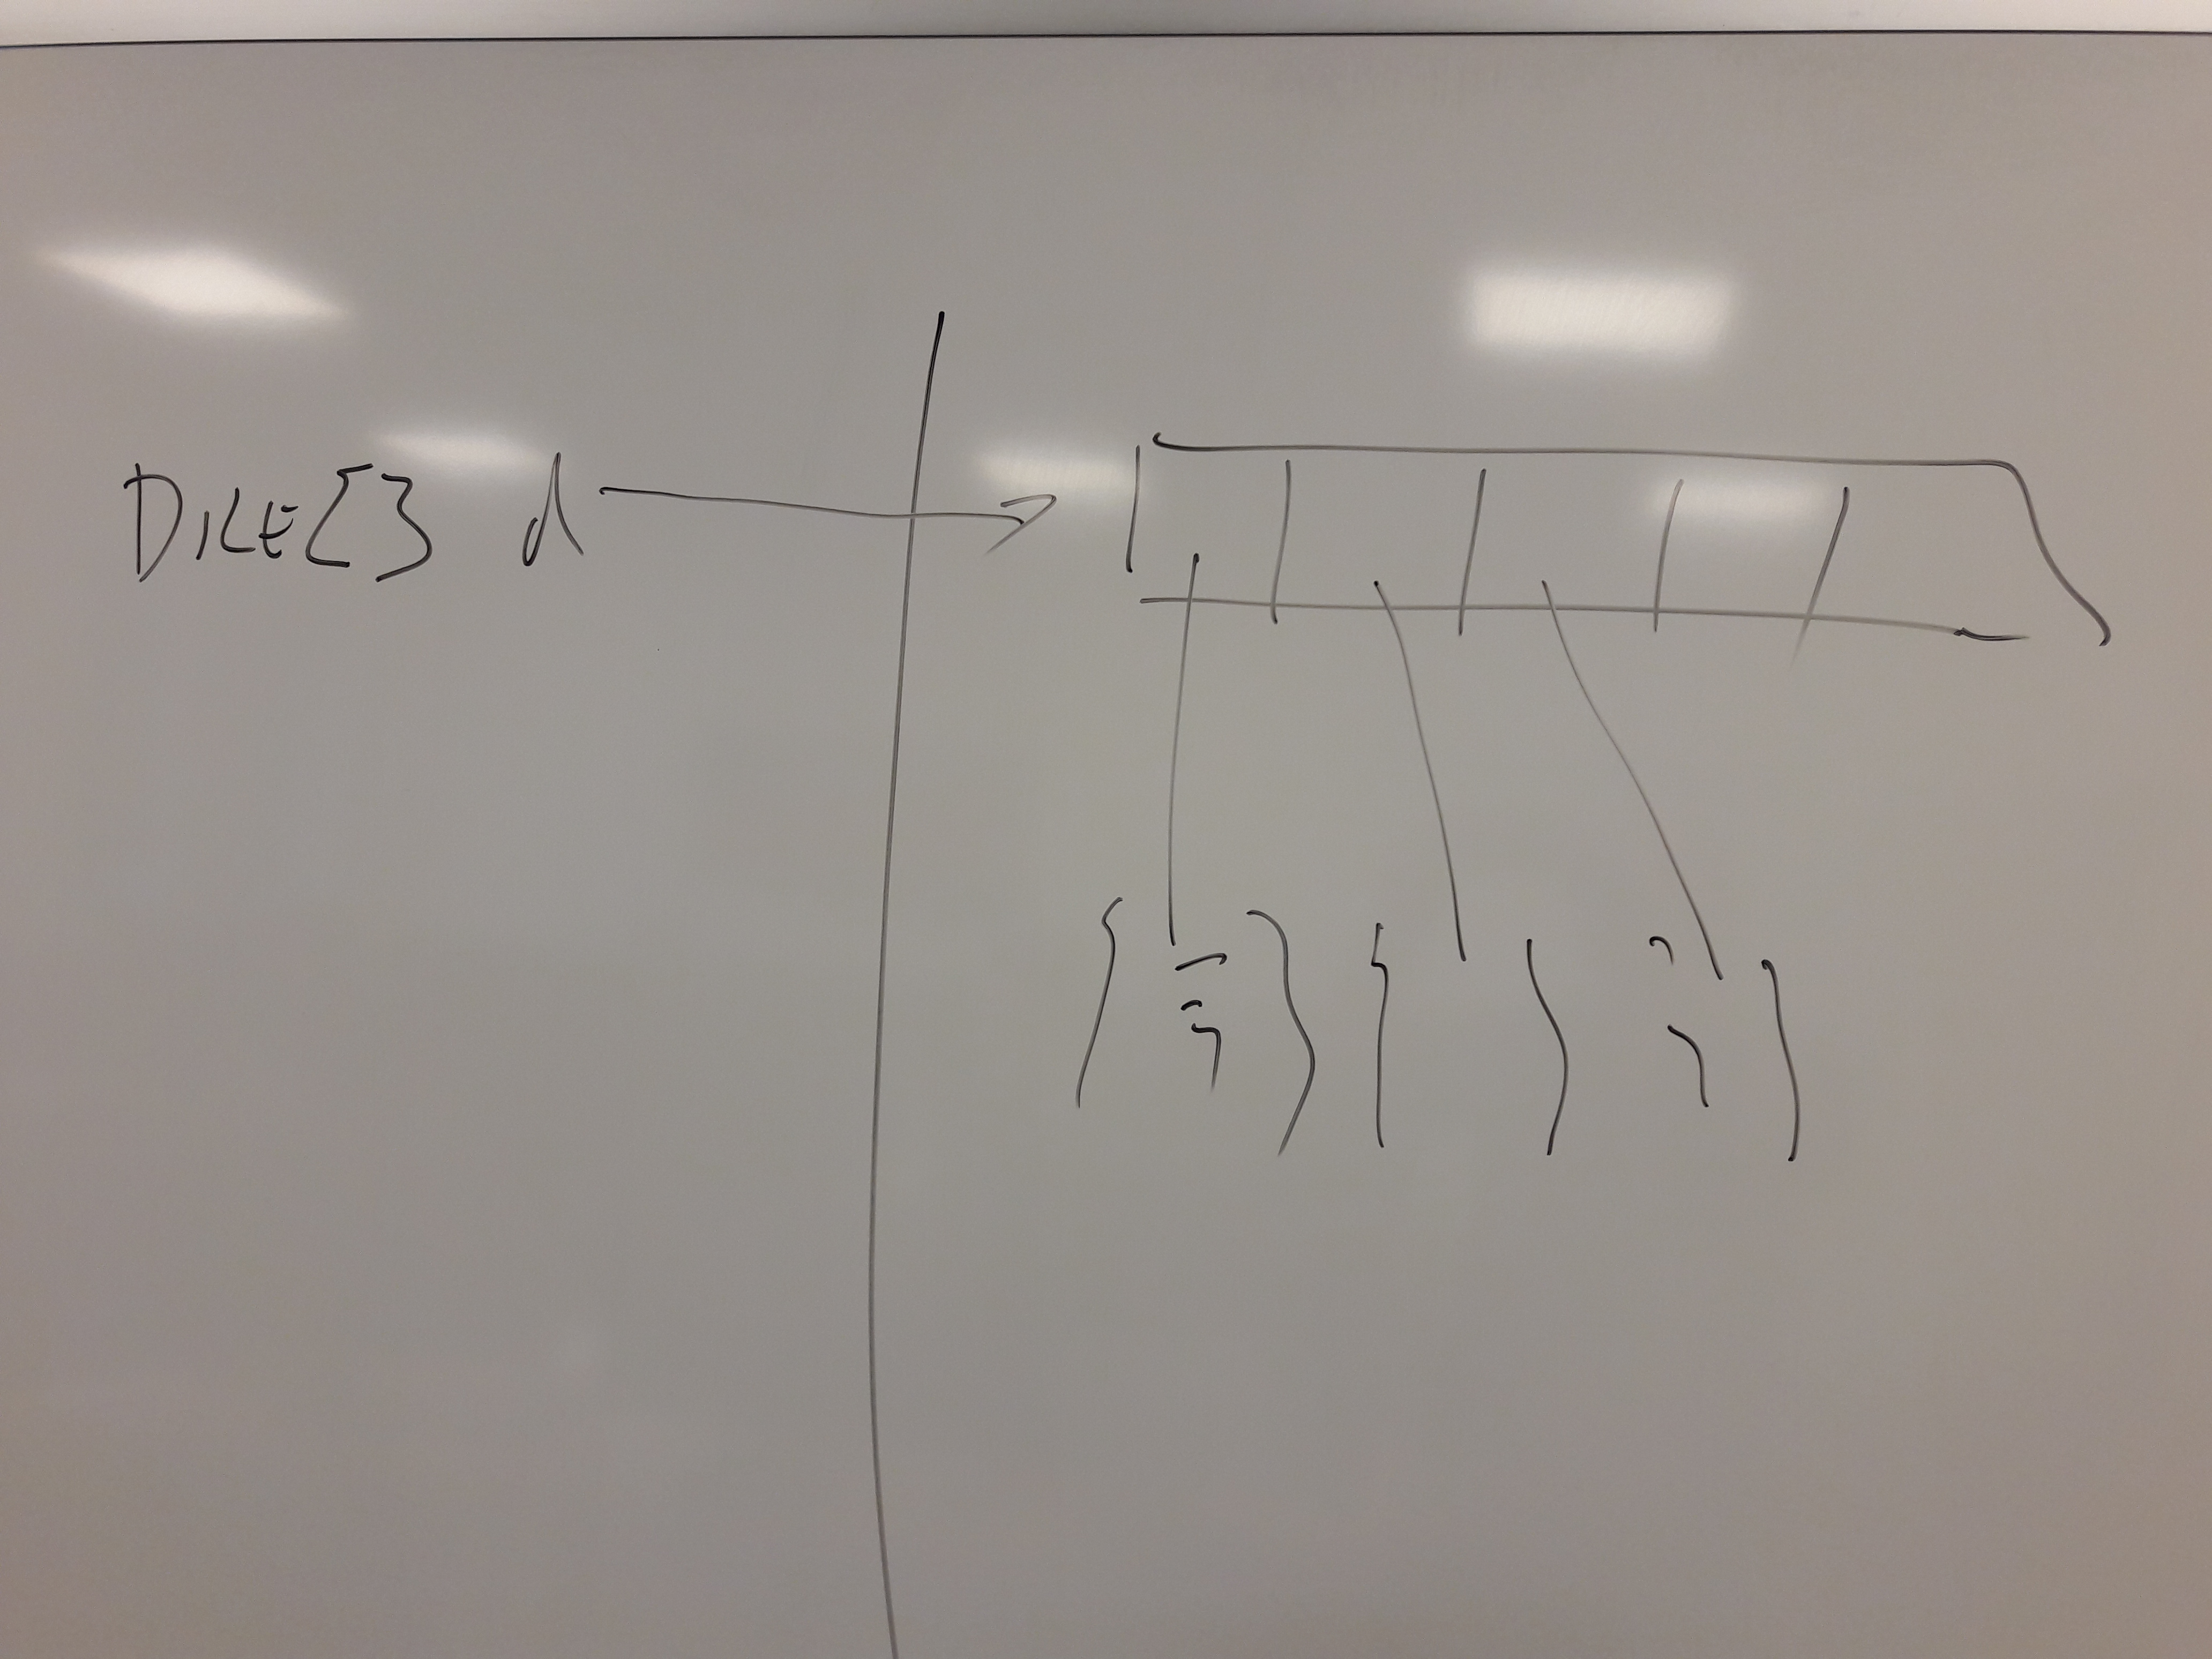 DICE[] d